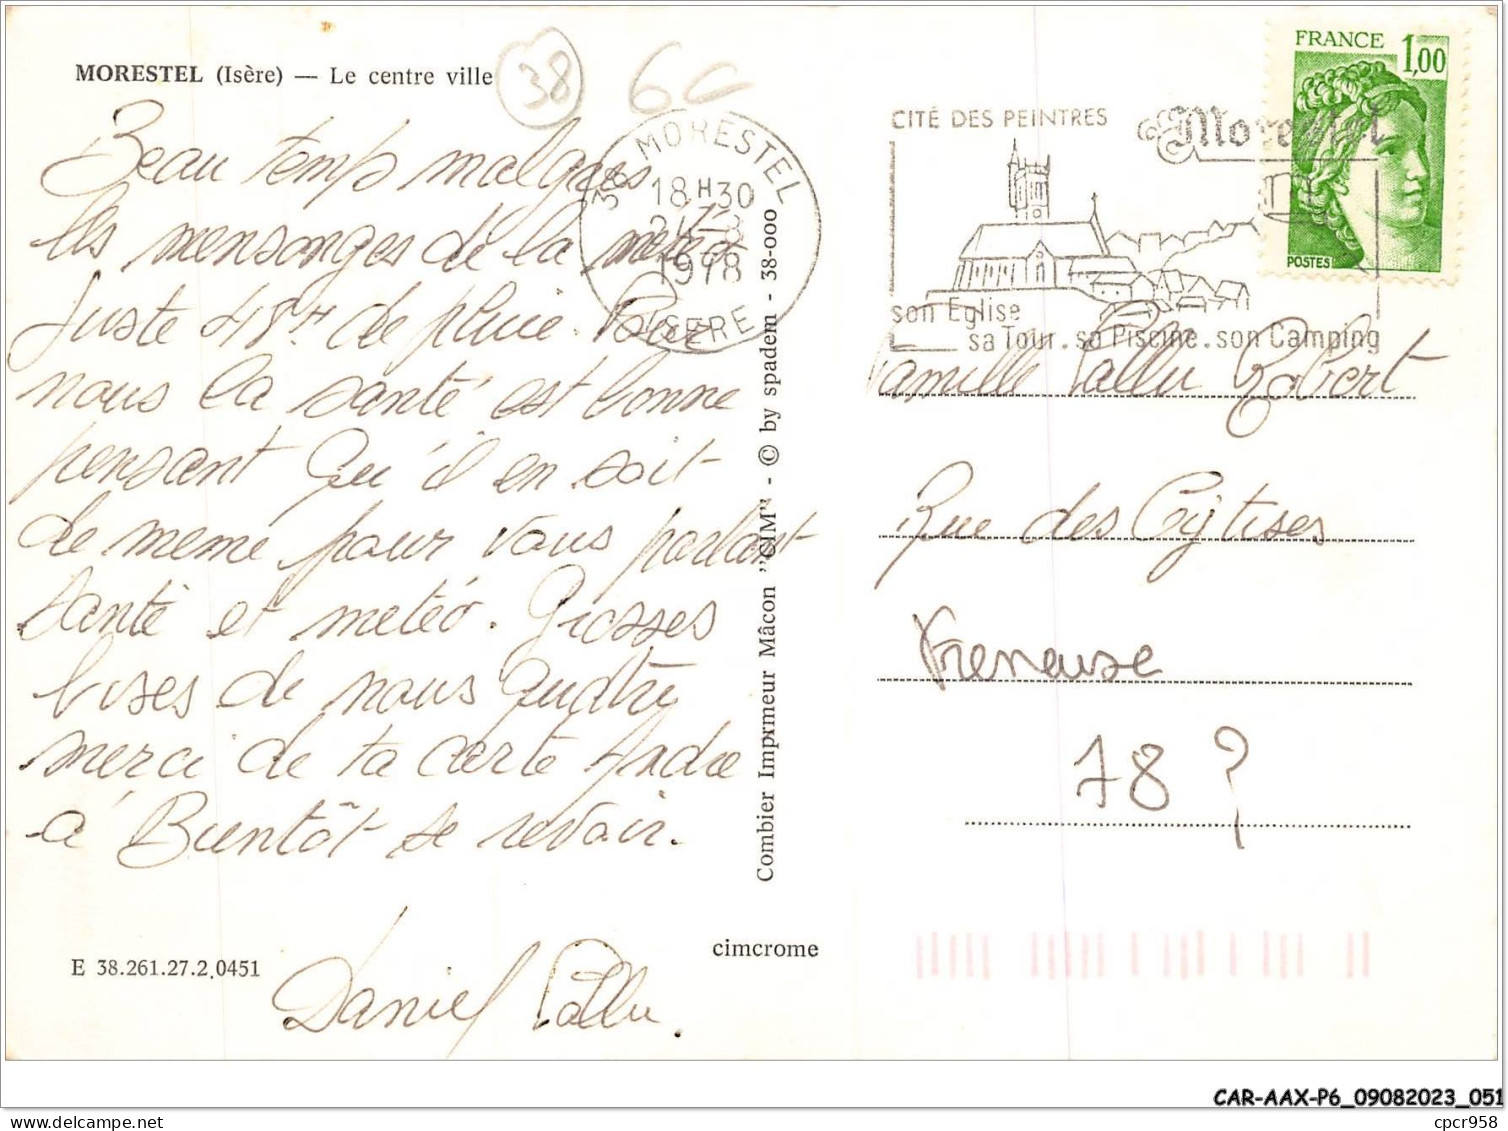 MORESTEL (Isère) — Le centre ville
38
60
Beau temp malgrès
les mensonges de la météo
Juste 48H de pluie. Pour
nous la santé est bonne
pensant qu'il en soit
de meme pour vous parlant
santé et météo. Grosses
bises de nous quatre
merci de ta carte Andre
a Bientôt se revoir.
Daniel Pallu.
E 38.261.27.2.0451
cimcrome
Combier Imprimeur Mâcon "CIM" - © by spadem - 38-000
38 MORESTEL
18H30
24-8
1978
ISERE
CITÉ DES PEINTRES
Morestel
son Eglise
sa Tour. sa Piscine. son Camping
FRANCE 1,00
POSTES
Famille Pallu Robert
Rue des Cytises
Freneuse
78 ?
CAR-AAX-P6_09082023_051
cpcr958